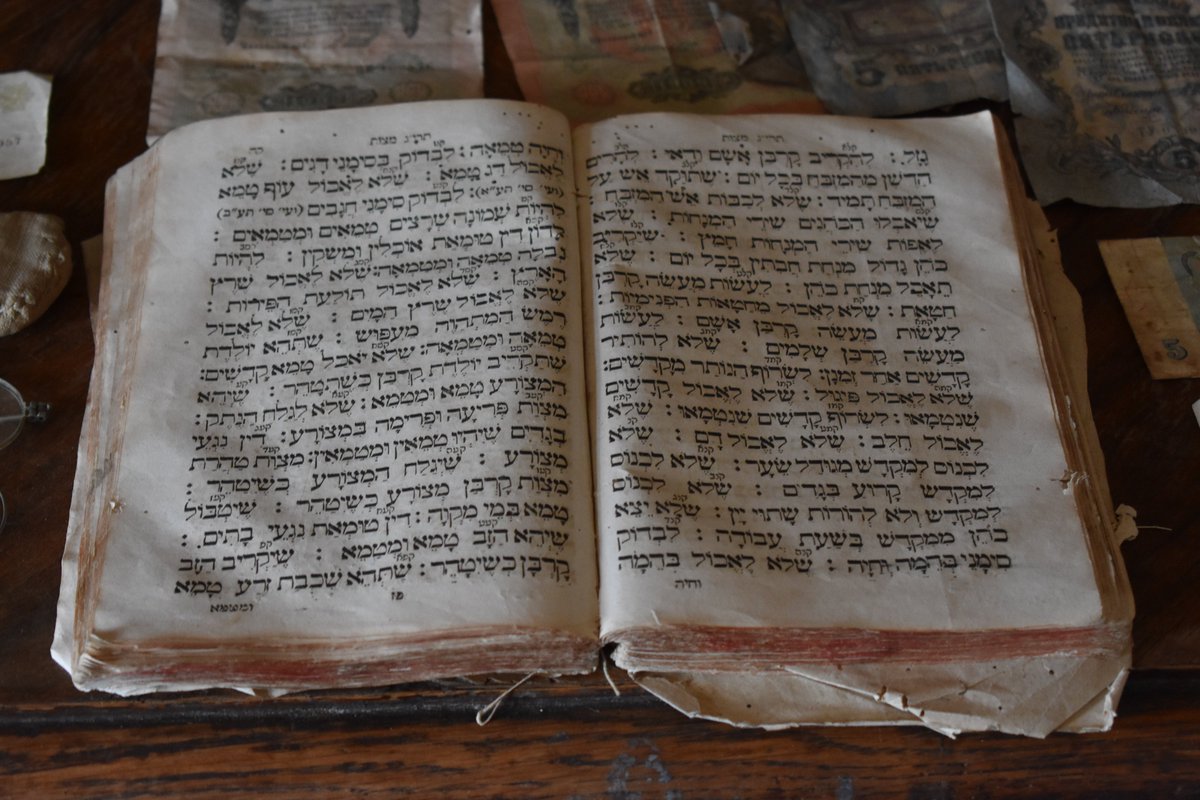 תרי״ג מצות
גזל : לְהַקְרִיב קָרְבַּן אָשָׁם וַדַּאי : לְהָרִים
הַדֶּשֶׁן מֵהַמִּזְבֵּחַ בְּכָל יוֹם : שֶׁתּוּקַד אֵשׁ עַל
הַמִּזְבֵּחַ תָּמִיד : שֶׁלֹּא לְכַבּוֹת אֵשׁ הַמִּזְבֵּחַ :
שֶׁיֹּאכְלוּ הַכֹּהֲנִים שְׁיָרֵי הַמְּנָחוֹת : שֶׁלֹּא
לֶאֱפוֹת שְׁיָרֵי הַמְּנָחוֹת חָמֵץ : שֶׁיַּקְרִיב
כֹּהֵן גָּדוֹל מִנְחַת חֲבִתִּין בְּכָל יוֹם : שֶׁלֹּא
תֵאָכֵל מִנְחַת כֹּהֵן : לַעֲשׂוֹת מַעֲשֵׂה קָרְבַּן
חַטָּאת : שֶׁלֹּא לֶאֱכוֹל מֵחַטָּאוֹת הַפְּנִימִיּוֹת :
לַעֲשׂוֹת מַעֲשֵׂה קָרְבַּן אָשָׁם : לַעֲשׂוֹת
מַעֲשֵׂה קָרְבַּן שְׁלָמִים : שֶׁלֹּא לְהוֹתִיר
קָדָשִׁים אַחַר זְמַנָּן : לִשְׂרוֹף הַנּוֹתָר מִקֳּדָשִׁים :
שֶׁלֹּא לֶאֱכוֹל פִּיגּוּל : שֶׁלֹּא לֶאֱכוֹל קָדָשִׁים
שֶׁנִּטְמָאוּ : לִשְׂרוֹף קָדָשִׁים שֶׁנִּטְמָאוּ : שֶׁלֹּא
לֶאֱכוֹל חֵלֶב : שֶׁלֹּא לֶאֱכוֹל דָּם : שֶׁלֹּא
לִכְנוֹס לַמִּקְדָּשׁ מְגוּדַּל שֵׂעָר : שֶׁלֹּא לִכְנוֹס
לַמִּקְדָּשׁ קְרוּעַ בְּגָדִים : שֶׁלֹּא לִכְנוֹס
לַמִּקְדָּשׁ וְלֹא לְהוֹרוֹת שְׁתוּי יַיִן : שֶׁלֹּא יֵצֵא
כֹהֵן מִמִּקְדָּשׁ בִּשְׁעַת עֲבוֹדָה : לִבְדּוֹק
סִימָנֵי בְּהֵמָה וְחַיָּה : שֶׁלֹּא לֶאֱכוֹל בְּהֵמָה
וחיה
תרי״ג מצות
וְחַיָּה טְמֵאָה : לִבְדּוֹק בְּסִימָנֵי דָגִים : שֶׁלֹּא
לֶאֱכוֹל דָּג טָמֵא : שֶׁלֹּא לֶאֱכוֹל עוֹף טָמֵא
(ועי׳ סי׳ תע״א) : לִבְדּוֹק סִימָנֵי חֲגָבִים (ועי׳ סי׳ תע״ב)
לִהְיוֹת שְׁמוֹנָה שְׁרָצִים טְמֵאִים וּמְטַמְּאִים :
לָדוֹן דִּין טוּמְאַת אוֹכְלִין וּמַשְׁקִין : לִהְיוֹת
נְבֵלָה טְמֵאָה וּמְטַמְּאָה : שֶׁלֹּא לֶאֱכוֹל שֶׁרֶץ
הָאָרֶץ : שֶׁלֹּא לֶאֱכוֹל תּוֹלַעַת הַפֵּירוֹת :
שֶׁלֹּא לֶאֱכוֹל שֶׁרֶץ הַמַּיִם : שֶׁלֹּא לֶאֱכוֹל
רֶמֶשׂ הַמִּתְהַוֶּה מֵעִפּוּשׁ : שֶׁתְּהֵא יוֹלֶדֶת
טְמֵאָה וּמְטַמְּאָה : שֶׁלֹּא יֹאכַל טָמֵא קָדָשִׁים :
שֶׁתַּקְרִיב יוֹלֶדֶת קָרְבָּן כְּשֶׁתִּטָּהֵר : שֶׁיְּהֵא
הַמְּצוֹרָע טָמֵא וּמְטַמֵּא : שֶׁלֹּא לְגַלֵּחַ הַנֶּתֶק :
מִצְוַת פְּרִיעָה וּפְרִימָה בִּמְצוֹרָע : דִּין נִגְעֵי
בְגָדִים שֶׁיִּהְיוּ טְמֵאִין וּמְטַמְּאִין : מִצְוַת טָהֳרַת
מְצוֹרָע : שֶׁיְּגַלַּח הַמְּצוֹרָע כְּשֶׁיִּטָּהֵר :
מִצְוַת קָרְבַּן מְצוֹרָע כְּשֶׁיִּטָּהֵר : שֶׁיִּטְבּוֹל
טָמֵא בְּמֵי מִקְוֶה : דִּין טוּמְאַת נִגְעֵי בָתִּים :
שֶׁיְּהֵא הַזָּב טָמֵא וּמְטַמֵּא : שֶׁיַּקְרִיב הַזָּב
קָרְבָּן כְּשֶׁיִּטָּהֵר : שֶׁתְּהֵא שִׁכְבַת זֶרַע טָמֵא
פז
ומטמא